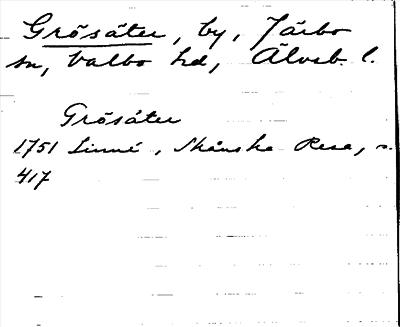 Grösäter, by, Järbo
sn, Valbo hd, Älvsb. l.
Grösäter
1751 Linné, Skånska Resa, s.
417